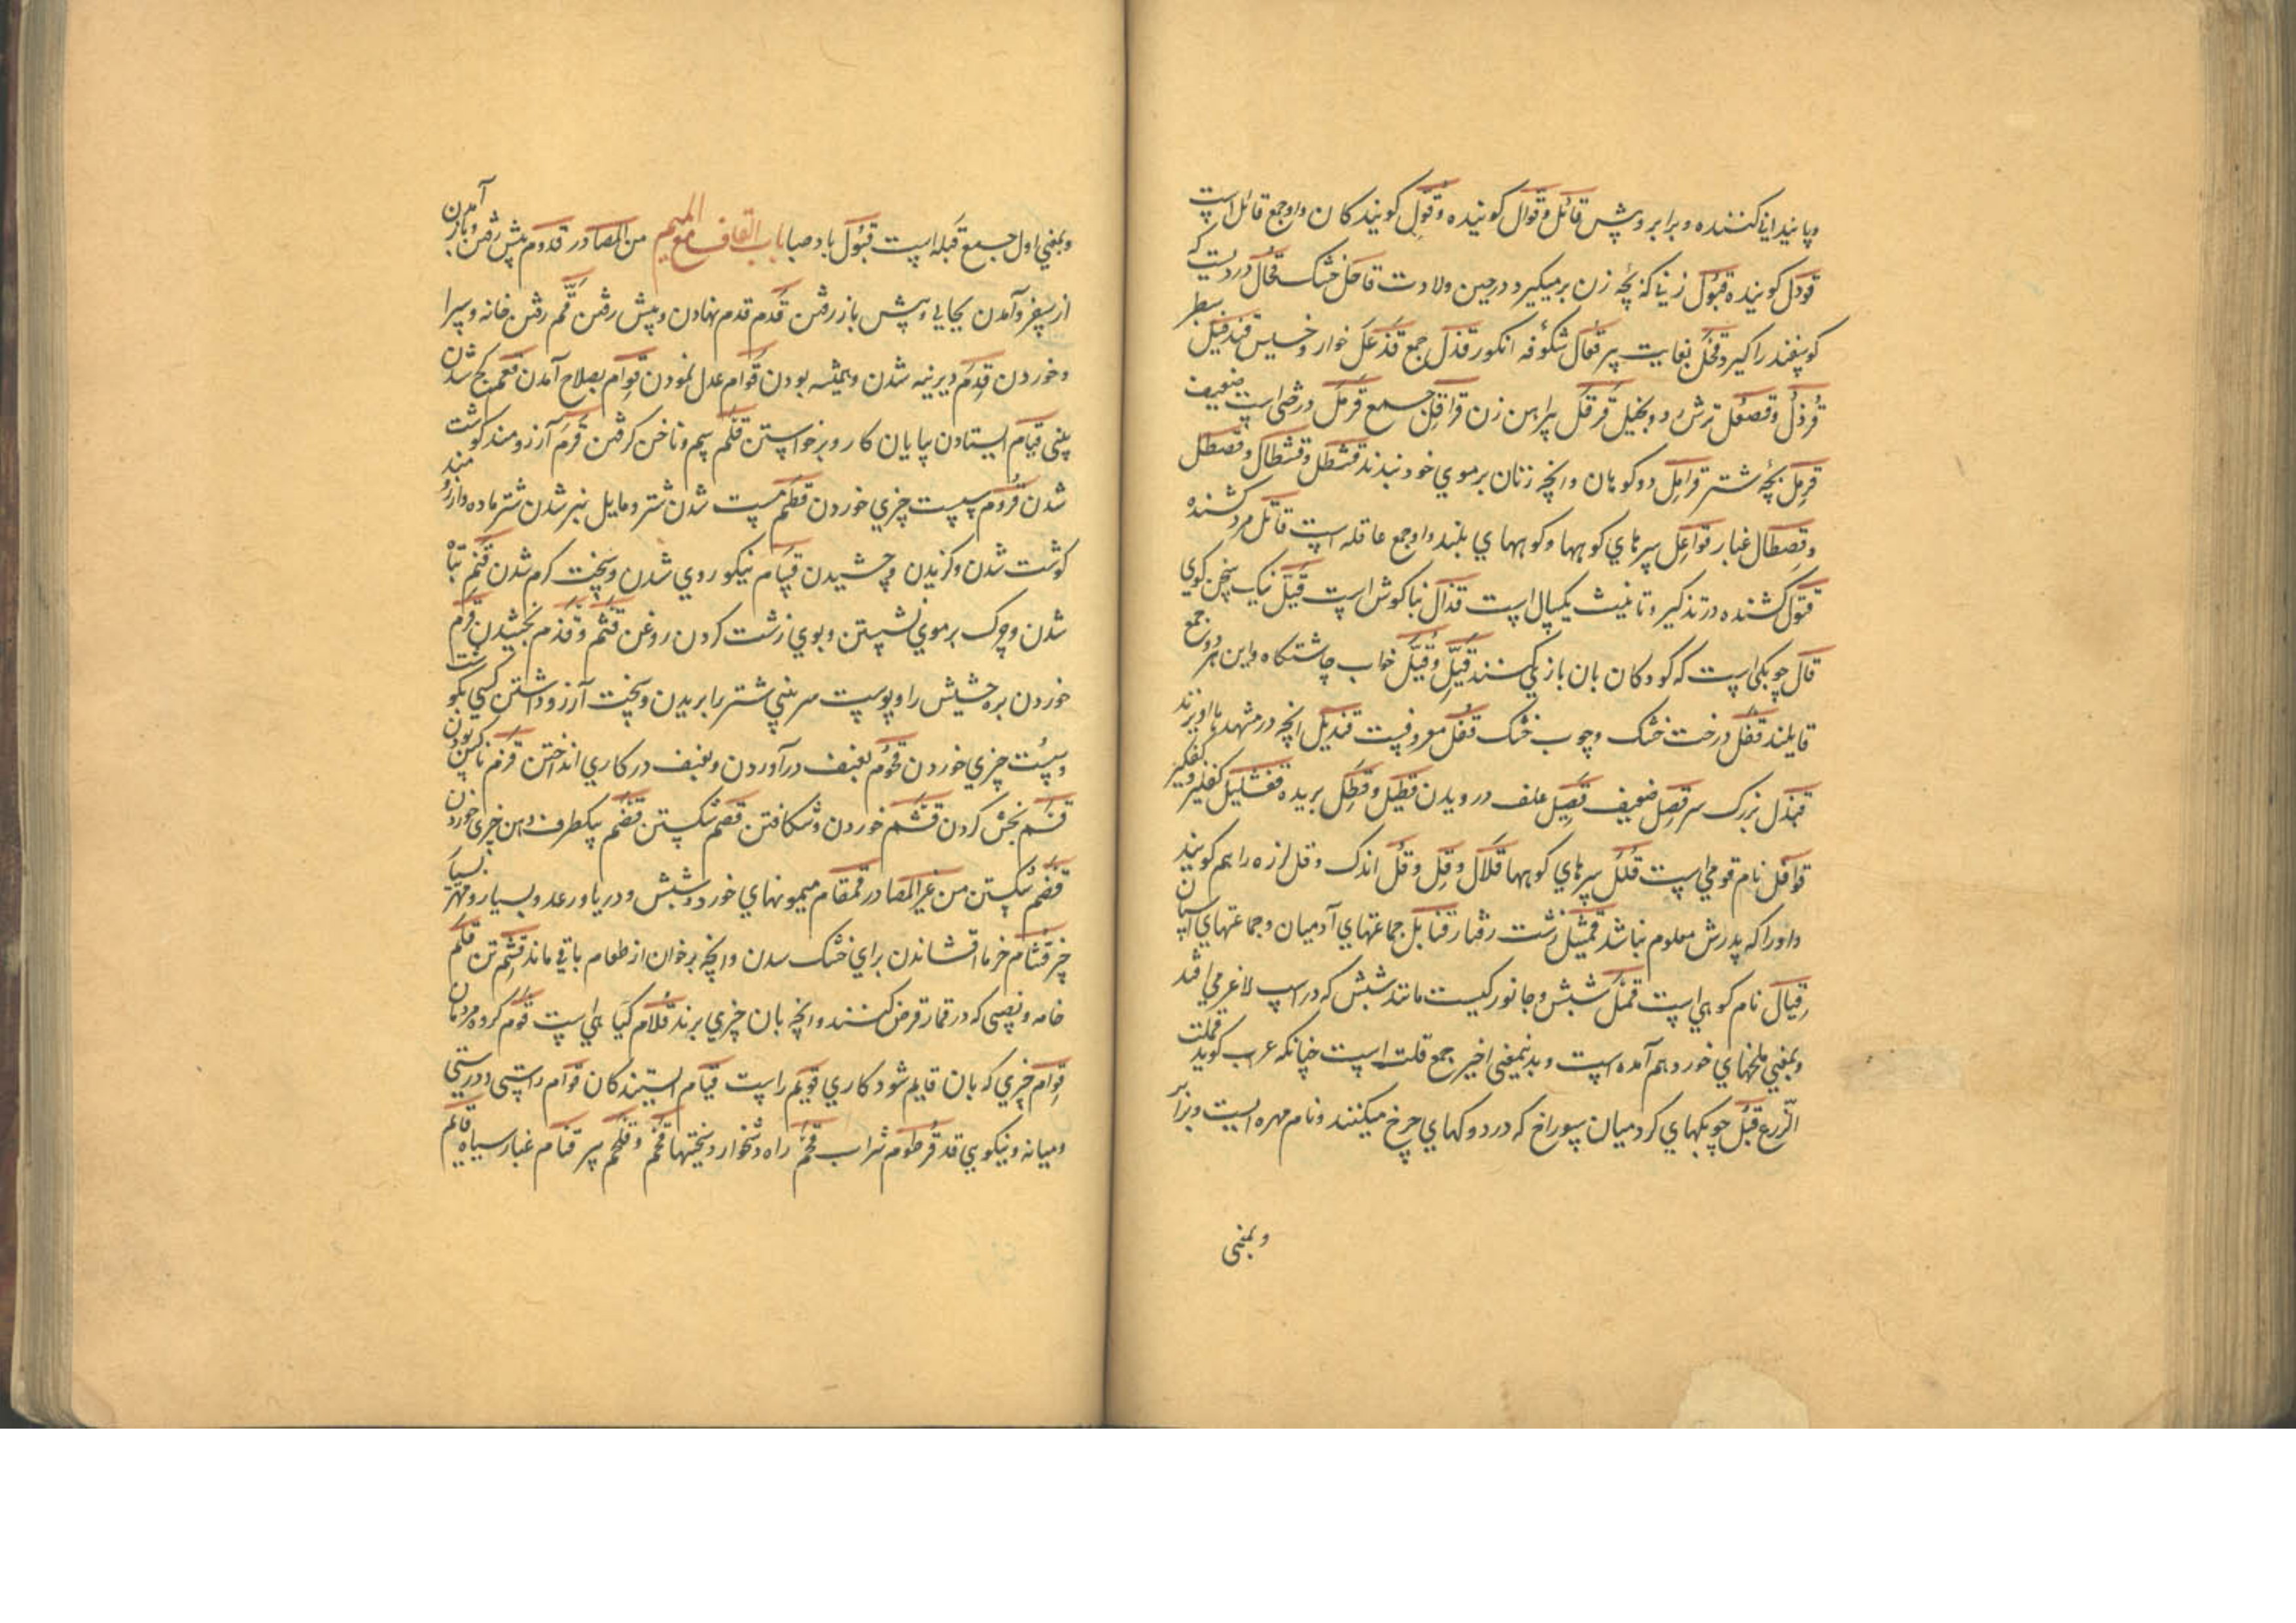 وپایندانی کننده و برابر و پیش قائل وقوال کوینده وقول کویندکان واو جمع قائل است
قودل کوینده قبول زنی که بچه زن برمیکیرد در حین ولادت قاحل خشک قحال دردیست که
کوسفند را کیرد قحل بغایت پیر قعال شکوفه انکور قذل جمع قذعل خوار وخسیس قندفیل سطبر
قرذل وقصعل ترش رو وبخیل قرقل پیراهن زن قراقل جمع قرمل درختی است ضعیف
قرمل بچه شتر قرامل دو کوهان وانچه زنان بر موی خود بندند قشطل وقشطال وقصطل
وقصطال غبار قواعل سرهای کوهها وکوههای بلند واو جمع عاقله است قاتل مرد کشنده
قتول کشنده در تذکیر وتانیث یکسال است قذال بناکوش است قیل نیک سخن کوی
قال چوبکی است که کودکان بان بازی کنند قیل وقیل خواب چاشتکاه واین هر دو جمع
قایلند قفل درخت خشک وچوب خشک قفل معروفست قندیل انچه در مشهدها اویزند
قندل بزرک سر قصل ضعیف قصیل علف درویدن قطیل وقطل بریده قفشلیل کفلیز وکفکیر
قوافل نام قومی است قلل سرهای کوهها قلال وقل وقل اندک وقل لرزه را هم کویند
واورا که پدرش معلوم نباشد قمثیل زشت رفتار قنابل جماعتهای آدمیان وجماعتهای اسپان
قیال نام کوهی است قمل شپش وجانورکیست مانند شپش که در اسپ لاغر می افتد
وبمعنی ملخهای خورد هم آمده است وبدینمعنی اخیر جمع قملت است چنانکه عرب کوید قملت
الزرع قبل چوبکهای کرد میان سوراخ که در دوکهای چرخ میکنند ونام مهره ایست وبرابر
وبمعنی
وبمعنی اول جمع قبله است قبول باد صبا باب القاف مع المیم من المصادر قدوم پیش رفتن وباز آمدن
از سفر وآمدن بجایی وپیش باز رفتن قدم قدم نهادن وپیش رفتن قمم رفتن خانه وسرا
وخوردن قدم دیرینه شدن وهمیشه بودن قوام عدل نمودن قوام بصلاح آمدن قعم کج شدن
بینی قیام ایستادن بپایان کار وبرخواستن قلم سم وناخن کرفتن قرم آرزومند کوشت
شدن قروم سست چیزی خوردن قطم مست شدن شتر ومایل بنر شدن شتر ماده وآرزومند
کوشت شدن وکزیدن وچشیدن قسام نیکو روی شدن وسخت کرم شدن قنم تباه
شدن وچرک بر موی نشستن وبوی زشت کردن روغن قثم وقذم بخشیدن قرم
خوردن بره حشیش را وپوست سر بینی شتر را بریدن وسخت آرزو داشتن کسی بکوشت
وسست چیزی خوردن قحوم بعنف درآوردن وبعنف در کاری انداختن قزم ناکس بودن
قسم بخش کردن قشم خوردن وشکافتن قصم شکستن قضم بیکطرف دهن چیزی خوردن
قضم شکستن من غیر المصادر قمقام میمونهای خورد وشپش ودریا ورعد وبسیار ومهتر بسیار
خیر قشام خرما افشاندن برای خشک سدن وانچه بر خوان از طعام باقی ماند قشم تن قلم
خامه ونصبی که در قمار قرض کنند وانچه بان چیزی برند قلام کیاهی است قوم کروه مردمان
قوام چیزی که بان قایم شود کاری قویم راست قیام ایستندکان قوام راستی ودرستی
ومیانه ونیکویی قد قرطوم شراب قحم راه دشخوار وسختیها قخم وقلحم پیر قتام غبار سیاه قاتم